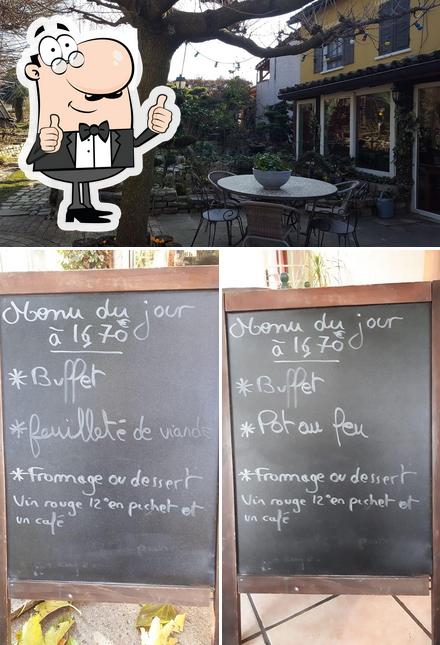 Menu du jour
à 16,70€
* Buffet
* feuilleté de viande
* Fromage ou dessert
Vin rouge 12° en pichet et
un café
Menu du jour
à 16,70€
* Buffet
* Pot au feu
* Fromage ou dessert
Vin rouge 12° en pichet et
un café